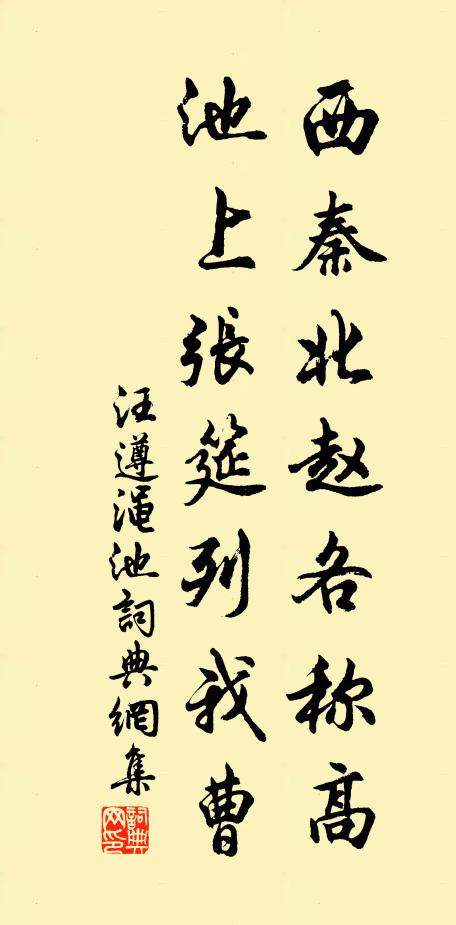 西秦北赵各称高
池上張筵列我曹
汪遵渑池詞典網集
詞典网印